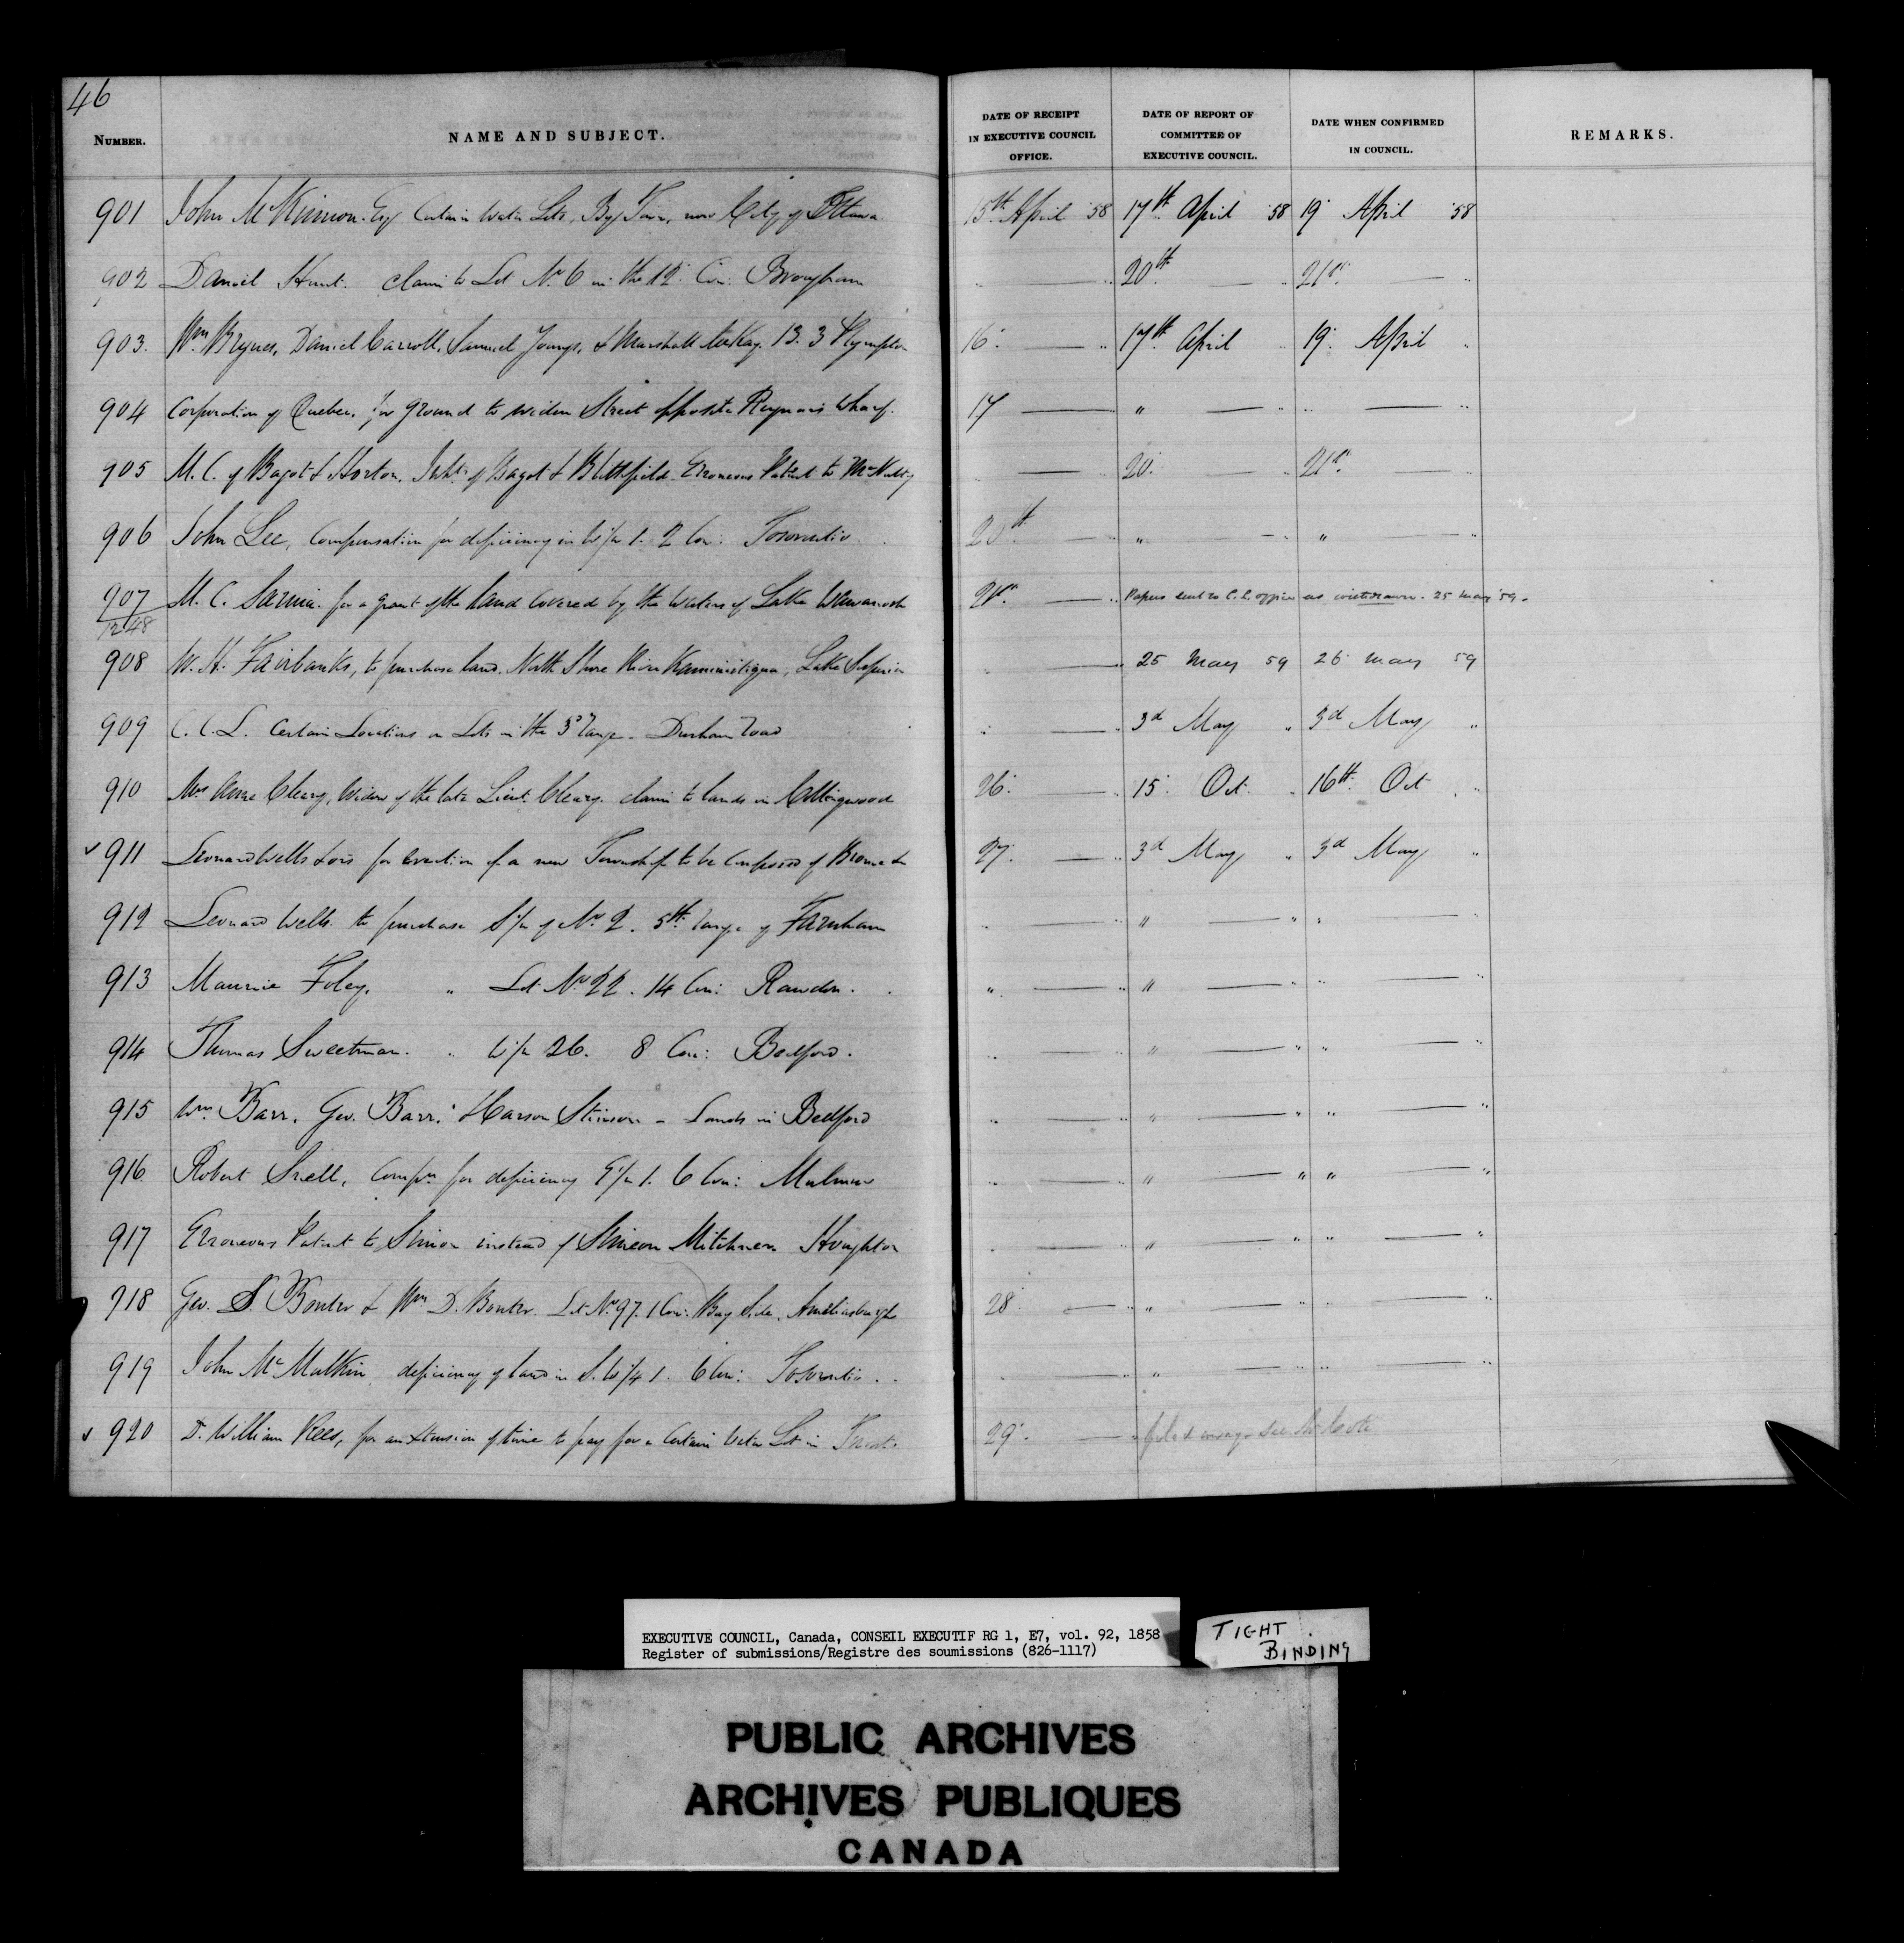 46
NUMBER. NAME AND SUBJECT. DATE OF RECEIPT IN EXECUTIVE COUNCIL OFFICE. DATE OF REPORT OF COMMITTEE OF EXECUTIVE COUNCIL. DATE WHEN CONFIRMED IN COUNCIL. REMARKS.
901 John McKinnon Esq Certain Water Lots, By Town, now City of Ottawa 15th April '58 17th April '58 19 April '58
902 Daniel Hunt. Claim to Lot No. 6 in the 12 Con: Brougham " — " 20th — " 21st — "
903. Wm Brynes, Daniel Carroll, Samuel Youngs, & Marshall McKay. 13. 3 Plympton 16. — " 17th April " 19. April "
904 Corporation of Quebec, for ground to widen Street opposite Wharf. 17 — " " — " " — "
905 M. C. of Bagot & Horton. Inhts of Bagot & Blithfield. Erroneous Patent to McNulty — " 20. — " 21st — "
906 John Lee, Compensation for deficiency in W½ 1. 2 Con: Tosorontio 20th — " " — " " — "
907 M. C. Sarnia. for a grant of the land Covered by the Waters of Lake Wawanosh 21st — " Papers sent to C. L. office as withdrawn. 25 May '59.
1248
908 W. H. Fairbanks, to purchase land, North Shore River Kaministiqua, Lake Superior " — " 25 May 59 26 May 59
909 C. C. L. Certain Locations on Lots in the 3d range - Durham road " — " 3d May " 3d May "
910 Mrs Anne Cleary, Widow of the late Lieut. Cleary. claim to lands in Collingwood 26. — " 15. Oct. " 16th Oct "
✓ 911 Leonard Wells & ors for erection of a new Township to be Composed of Brome &c 27. — " 3d May " 3d May "
912 Leonard Wells. to purchase S½ of No 2. 5th range of Farnham " — " " — " " — "
913 Maurice Foley. " Lot No 22. 14 Con: Rawdon. " — " " — " " — "
914 Thomas Sweetman. " W½ 26. 8 Con: Bedford. " — " " — " " — "
915 Wm. Barr, Geo. Barr, & Stinson - Lands in Bedford " — " " — " " — "
916 Robert Snell, Compn for deficiency E½ 1. 6 Con: Mulmur " — " " — " " — "
917 Erroneous Patent to Simon instead of Simeon Mitchner Houghton " — " " — " " — "
918 Geo. S. Bonter & Wm D. Bonter. Lot No 97. 1 Con: Bay Side, Ameliasburgh 28 — " " — " " — "
919 John McMulkin, deficiency of land in S.W¼ 1. 6 Con: Tosorontio. — " " — " " — "
✓ 920 Dr William Rees, for an extension of time to pay for a Certain Water Lot in Toronto 29. — "
EXECUTIVE COUNCIL, Canada, CONSEIL EXECUTIF RG 1, E7, vol. 92, 1858
Register of submissions/Registre des soumissions (826-1117)
TIGHT
BINDING
PUBLIC ARCHIVES
ARCHIVES PUBLIQUES
CANADA